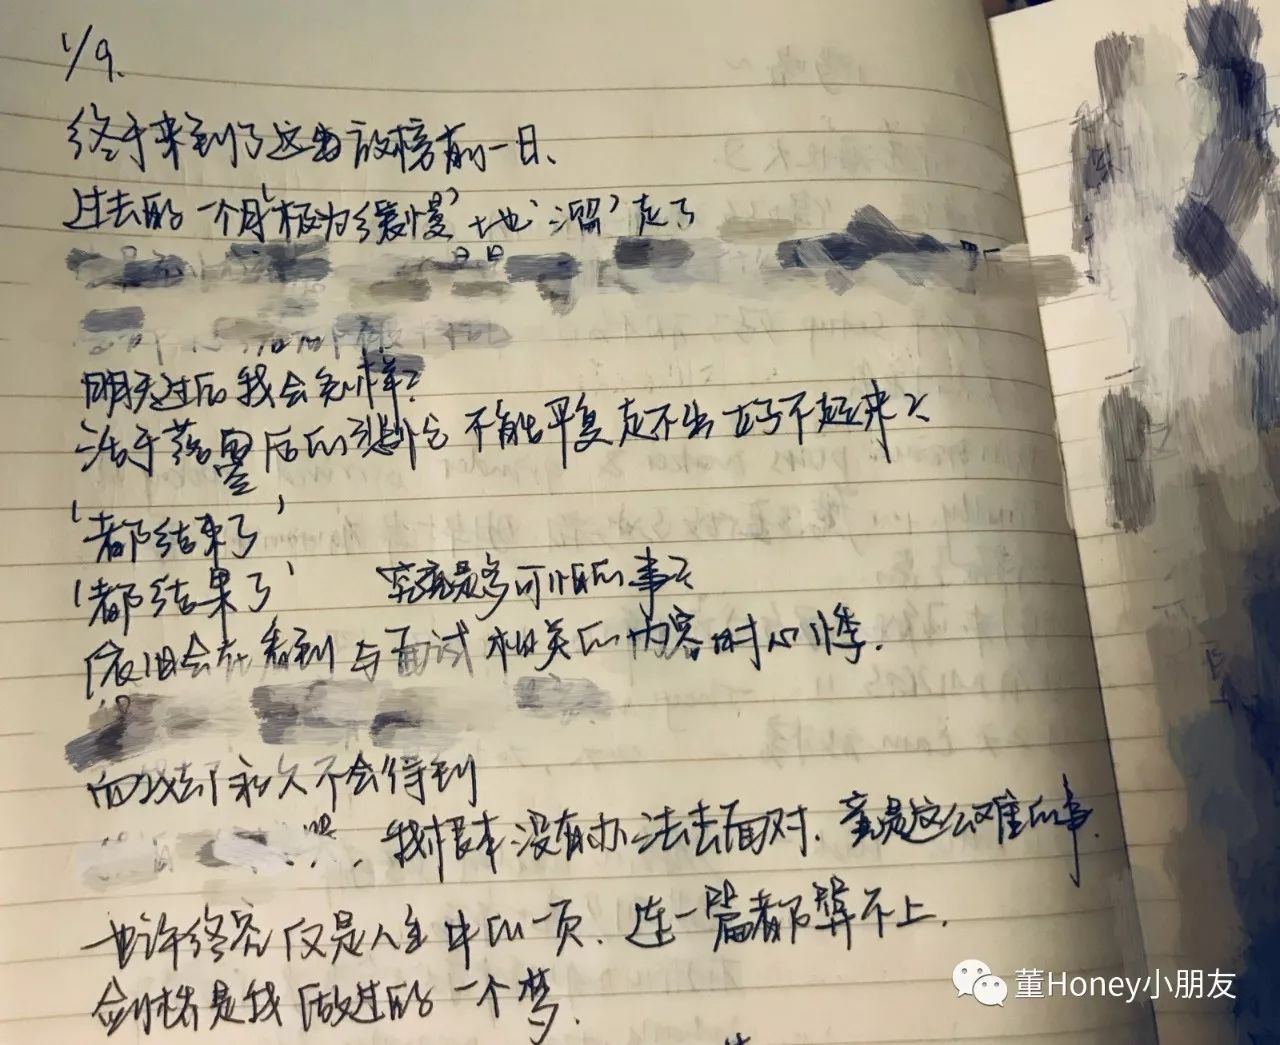 1/9.
终于来到了这出放榜前一日、
过去的一个月'极为缓慢'地'溜'走了
明天过后我会怎样?
沉于落寞后的悲伤 不能平复 走不出 好不起来?
'都结束了'
'都结果了' 究竟是多可怕的事?
依旧会在看到与面试相关的内容时心悸.
而我却永久不会得到
我根本没有办法去面对. 竟是这么难的事.
也许终究仅是人生中的一页. 连一篇都算不上.
剑桥是我做过的一个梦.
董Honey小朋友